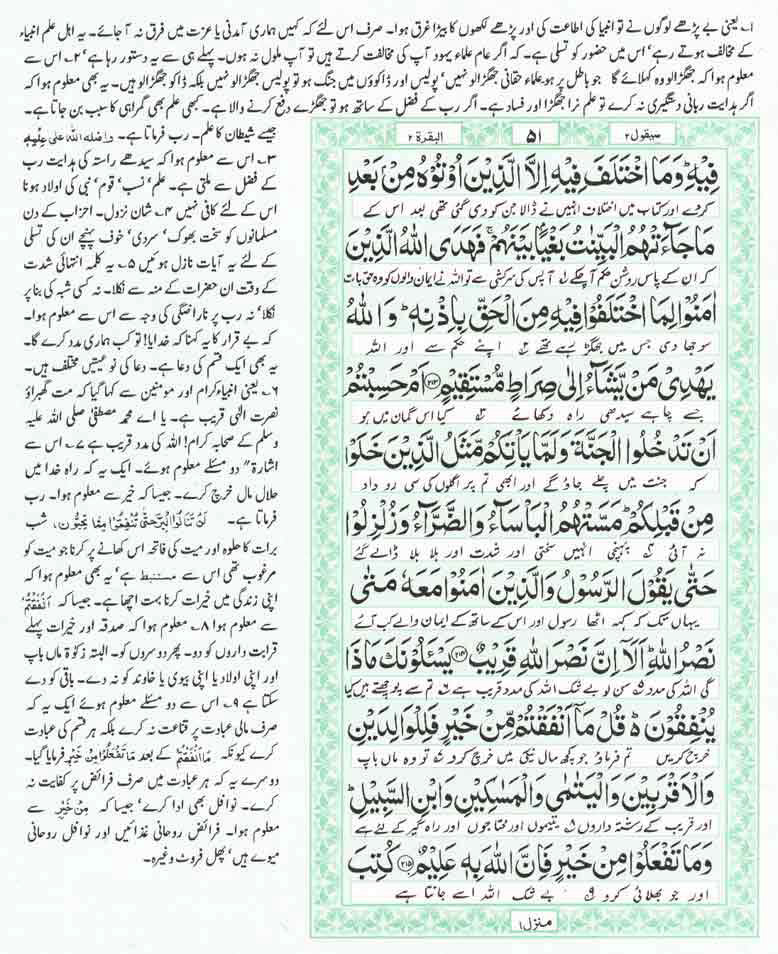 ۱؎ یعنی بے پڑھے لوگوں نے تو انبیا کی اطاعت کی اور پڑھے لکھوں کا بیڑا غرق ہوا۔ صرف اس لئے کہ کہیں ہماری آمدنی یا عزت میں فرق نہ آ جائے۔ یہ اہل علم انبیاء
کے مخالف ہوتے رہے‘ اس میں حضور کو تسلی ہے۔ کہ اگر عام علماء یہود آپ کی مخالفت کرتے ہیں تو آپ ملول نہ ہوں۔ پہلے ہی سے یہ دستور رہا ہے‘ ۲؎ اس سے
معلوم ہوا کہ جھگڑالو وہ کہلائے گا جو باطل پر ہو علماء حقانی جھگڑالو نہیں‘ پولیس اور ڈاکوؤں میں جنگ ہو تو پولیس جھگڑالو نہیں بلکہ ڈاکو جھگڑالو ہیں۔ یہ بھی معلوم ہوا کہ
اگر ہدایت ربانی دستگیری نہ کرے تو علم نرا جھگڑا اور فساد ہے۔ اگر رب کے فضل کے ساتھ ہو تو جھگڑے دفع کرنے والا ہے۔ کبھی علم بھی گمراہی کا سبب بن جاتا ہے۔
جیسے شیطان کا علم۔ رب فرماتا ہے۔ واضلہ اللہ علی علم
۳؎ اس سے معلوم ہوا کہ سیدھے راستہ کی ہدایت رب
کے فضل سے ملتی ہے۔ علم‘ نسب‘ قوم‘ نبی کی اولاد ہونا
اس کے لئے کافی نہیں ۴؎ شان نزول۔ احزاب کے دن
مسلمانوں کو سخت بھوک‘ سردی‘ خوف پہنچے ان کی تسلی
کے لئے یہ آیات نازل ہوئیں ۵؎ یہ کلمہ انتہائی شدت
کے وقت ان حضرات کے منہ سے نکلا۔ نہ کسی شبہ کی بنا پر
نکلا‘ نہ رب پر ناراضگی کی وجہ سے اس سے معلوم ہوا۔
کہ بے قرار کا یہ کہنا کہ خدایا! تو کب ہماری مدد کرے گا۔
یہ بھی ایک قسم کی دعا ہے۔ دعا کی نوعیتیں مختلف ہیں۔
۶؎ یعنی انبیاء کرام اور مومنین سے کہا گیا کہ مت گھبراؤ
نصرت الٰہی قریب ہے۔ یا اے محمد مصطفیٰ صلی اللہ علیہ
وسلم کے صحابہ کرام! اللہ کی مدد قریب ہے ۷؎ اس سے
اشارۃً دو مسئلے معلوم ہوئے۔ ایک یہ کہ راہ خدا میں
حلال مال خرچ کرے۔ جیسا کہ خیر سے معلوم ہوا۔ رب
فرماتا ہے۔ لَنْ تَنَالُوا الْبِرَّ حَتّٰى تُنْفِقُوْا مِمَّا تُحِبُّوْنَ، شب
برات کا حلوہ اور میت کی فاتحہ اس کھانے پر کرنا جو میت کو
مرغوب تھی اس سے مستنبط ہے‘ یہ بھی معلوم ہوا کہ
اپنی زندگی میں خیرات کرنا بہت اچھا ہے۔ جیسا کہ اَنْفَقْتُمْ
سے معلوم ہوا ۸؎ معلوم ہوا کہ صدقہ اور خیرات پہلے
قرابت داروں کو دو۔ پھر دوسروں کو۔ البتہ زکوٰۃ ماں باپ
اور اپنی اولاد یا اپنی بیوی یا خاوند کو نہ دے۔ باقی کو دے
سکتا ہے ۹؎ اس سے دو مسئلے معلوم ہوئے ایک یہ کہ
صرف مالی عبادت پر قناعت نہ کرے بلکہ ہر قسم کی عبادت
کرے کیونکہ مَا اَنْفَقْتُمْ کے بعد مَا تَفْعَلُوْا مِنْ خَيْرٍ فرمایا گیا۔
دوسرے یہ کہ ہر عبادت میں صرف فرائض پر کفایت نہ
کرے۔ نوافل بھی ادا کرے‘ جیسا کہ مِنْ خَيْرٍ سے
معلوم ہوا۔ فرائض روحانی غذائیں اور نوافل روحانی
میوے ہیں‘ پھل فروٹ وغیرہ۔
سیقول ۲ ۵۱ البقرۃ ۲
فِيْهِ ؕ وَمَا اخْتَلَفَ فِيْهِ اِلَّا الَّذِيْنَ اُوْتُوْهُ مِنْۢ بَعْدِ
کردے اور کتاب میں اختلاف انہیں نے ڈالا جن کو دی گئی تھی بعد اس کے
مَا جَآءَتْهُمُ الْبَيِّنٰتُ بَغْيًۢا بَيْنَهُمْ ۚ فَهَدَى اللّٰهُ الَّذِيْنَ
کہ ان کے پاس روشن حکم آ چکے ۱؎ آپس کی سرکشی سے تو اللہ نے ایمان والوں کو وہ حق بات
اٰمَنُوْا لِمَا اخْتَلَفُوْا فِيْهِ مِنَ الْحَقِّ بِاِذْنِهٖ ؕ وَاللّٰهُ
سوجھا دی جس میں جھگڑ رہے تھے ۲؎ اپنے حکم سے اور اللہ
يَهْدِيْ مَنْ يَّشَآءُ اِلٰى صِرَاطٍ مُّسْتَقِيْمٍ ۝۲۱۳ اَمْ حَسِبْتُمْ
جسے چاہے سیدھی راہ دکھائے ۳؎ کیا اس گمان میں ہو
اَنْ تَدْخُلُوا الْجَنَّةَ وَلَمَّا يَاْتِكُمْ مَّثَلُ الَّذِيْنَ خَلَوْا
کہ جنت میں چلے جاؤ گے اور ابھی تم پر اگلوں کی سی روداد
مِنْ قَبْلِكُمْ ؕ مَسَّتْهُمُ الْبَاْسَآءُ وَالضَّرَّآءُ وَزُلْزِلُوْا
نہ آئی ۴؎ پہنچی انہیں سختی اور شدت اور ہلا ہلا ڈالے گئے
حَتّٰى يَقُوْلَ الرَّسُوْلُ وَالَّذِيْنَ اٰمَنُوْا مَعَهٗ مَتٰى
یہاں تک کہ کہہ اٹھا رسول اور اس کے ساتھ کے ایمان والے کب آئے
نَصْرُ اللّٰهِ ؕ اَلَاۤ اِنَّ نَصْرَ اللّٰهِ قَرِيْبٌ ۝۲۱۴ يَسْـَٔلُوْنَكَ مَاذَا
گی اللہ کی مدد ۵؎ سن لو بے شک اللہ کی مدد قریب ہے ۶؎ تم سے پوچھتے ہیں کیا
يُنْفِقُوْنَ ؕ قُلْ مَاۤ اَنْفَقْتُمْ مِّنْ خَيْرٍ فَلِلْوَالِدَيْنِ
خرچ کریں تم فرماؤ جو کچھ مال نیکی میں خرچ کرو ۷؎ تو وہ ماں باپ
وَالْاَقْرَبِيْنَ وَالْيَتٰمٰى وَالْمَسٰكِيْنِ وَابْنِ السَّبِيْلِ ؕ
اور قریب کے رشتہ داروں ۸؎ یتیموں اور محتاجوں اور راہ گیر کے لئے ہے
وَمَا تَفْعَلُوْا مِنْ خَيْرٍ فَاِنَّ اللّٰهَ بِهٖ عَلِيْمٌ ۝۲۱۵ كُتِبَ
اور جو بھلائی کرو ۹؎ بے شک اللہ اسے جانتا ہے
منزل ۱